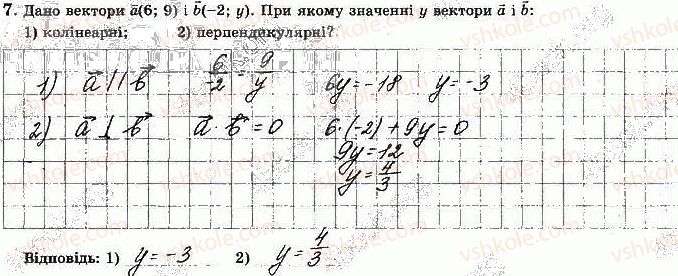 7. Дано вектори a⃗(6; 9) і b⃗(−2; y). При якому значенні y вектори a⃗ і b⃗:
1) колінеарні; 2) перпендикулярні?
1) a⃗ || b⃗ 6/-2 = 9/y 6y = -18 y = -3
2) a⃗ ⊥ b⃗ a⃗ · b⃗ = 0 6·(-2) + 9y = 0
9y = 12
y = 4/3
Відповідь: 1) y = -3 2) y = 4/3
vshkole.com